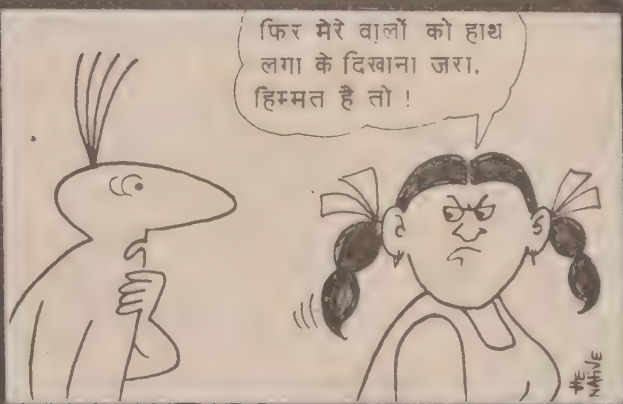 फिर मेरे वालों को हाथ
लगा के दिखाना जरा.
हिम्मत है तो !
THE
NATIVE